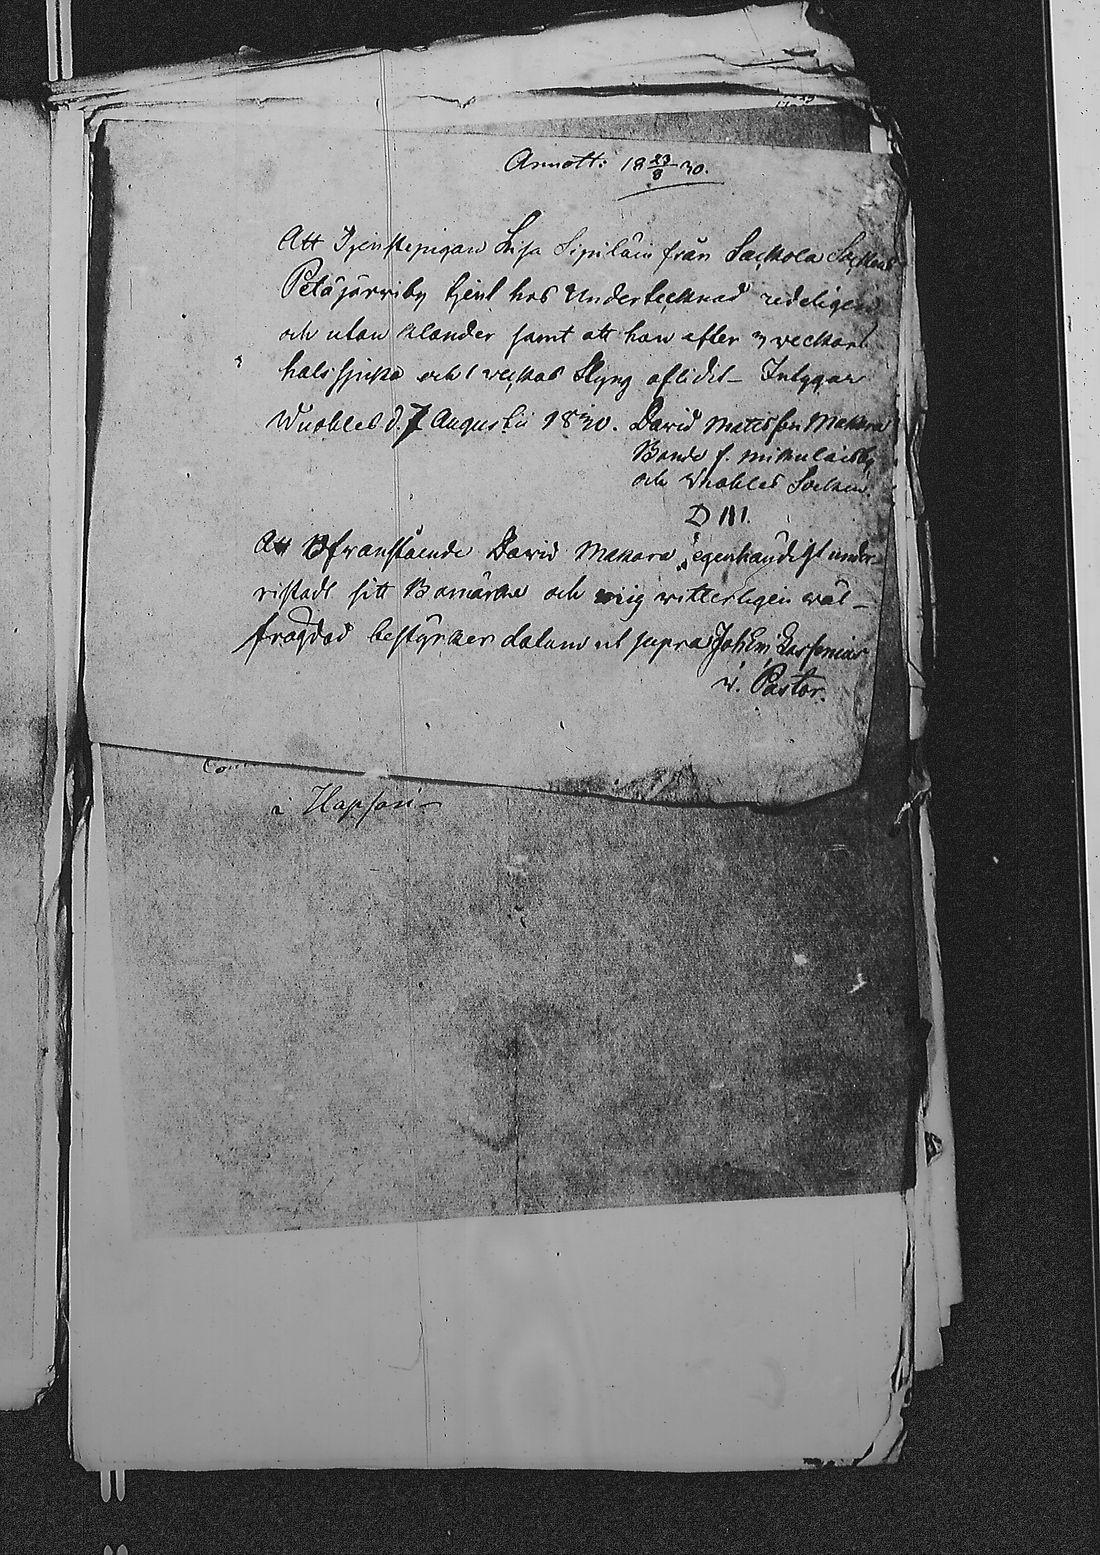 Annott: 18 23/8 30.
Att Tjenstepigan Lisa Sipiläin från Sackola Sockens
Petäjärviby tjent hos Undertecknad redeligen
och utan klander samt att hon efter 3 veckors
halssjuka och 1 veckas Styng aflidit – Intygar
Wuoles d. 7 Augustii 1830. David Matesson Makara
Bonde f. Mikulaisby
och Wuoles Socken
D M.
Att Ofvanstående David Makara egenhändigt under-
ristadt sitt Bomärke och mig witterligen wäl-
frägdad bestyrker datum ut supra Joh: Em:
v. Pastor.
i Hapsari